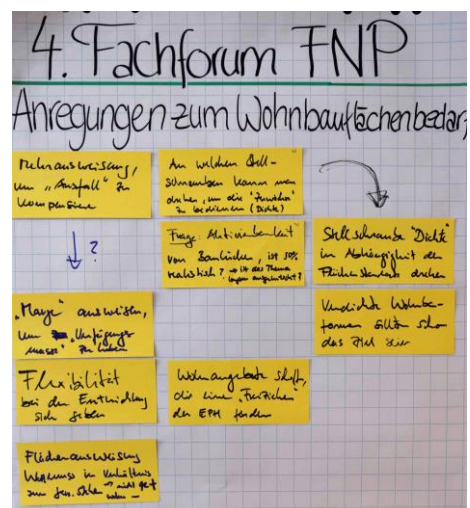 4. Fachforum FNP
Anregungen zum Wohnbauflächenbedarf
Mehrausweisung,
um „Ausfall“ zu
kompensieren
?
„Marge“ ausweisen,
um Verfügungs-
masse zu haben
Flexibilität
bei der Entwicklung
sich geben
Flächenausweisung
im Verhältnis
zum
An welchen Stell-
schrauben kann man
drehen, um die
zu bedienen (Dichte)
Frage: Aktivierbarkeit
von Baulücken, ist 50%
realistisch? → ist das Thema
Wohnangebote schaffen,
die ein „Freiziehen“
der EFH fördern
Stellschraube "Dichte"
in Abhängigkeit der
Flächenstandorte drehen
Verdichtete Wohnbe-
formen sollten schon
das Ziel sein